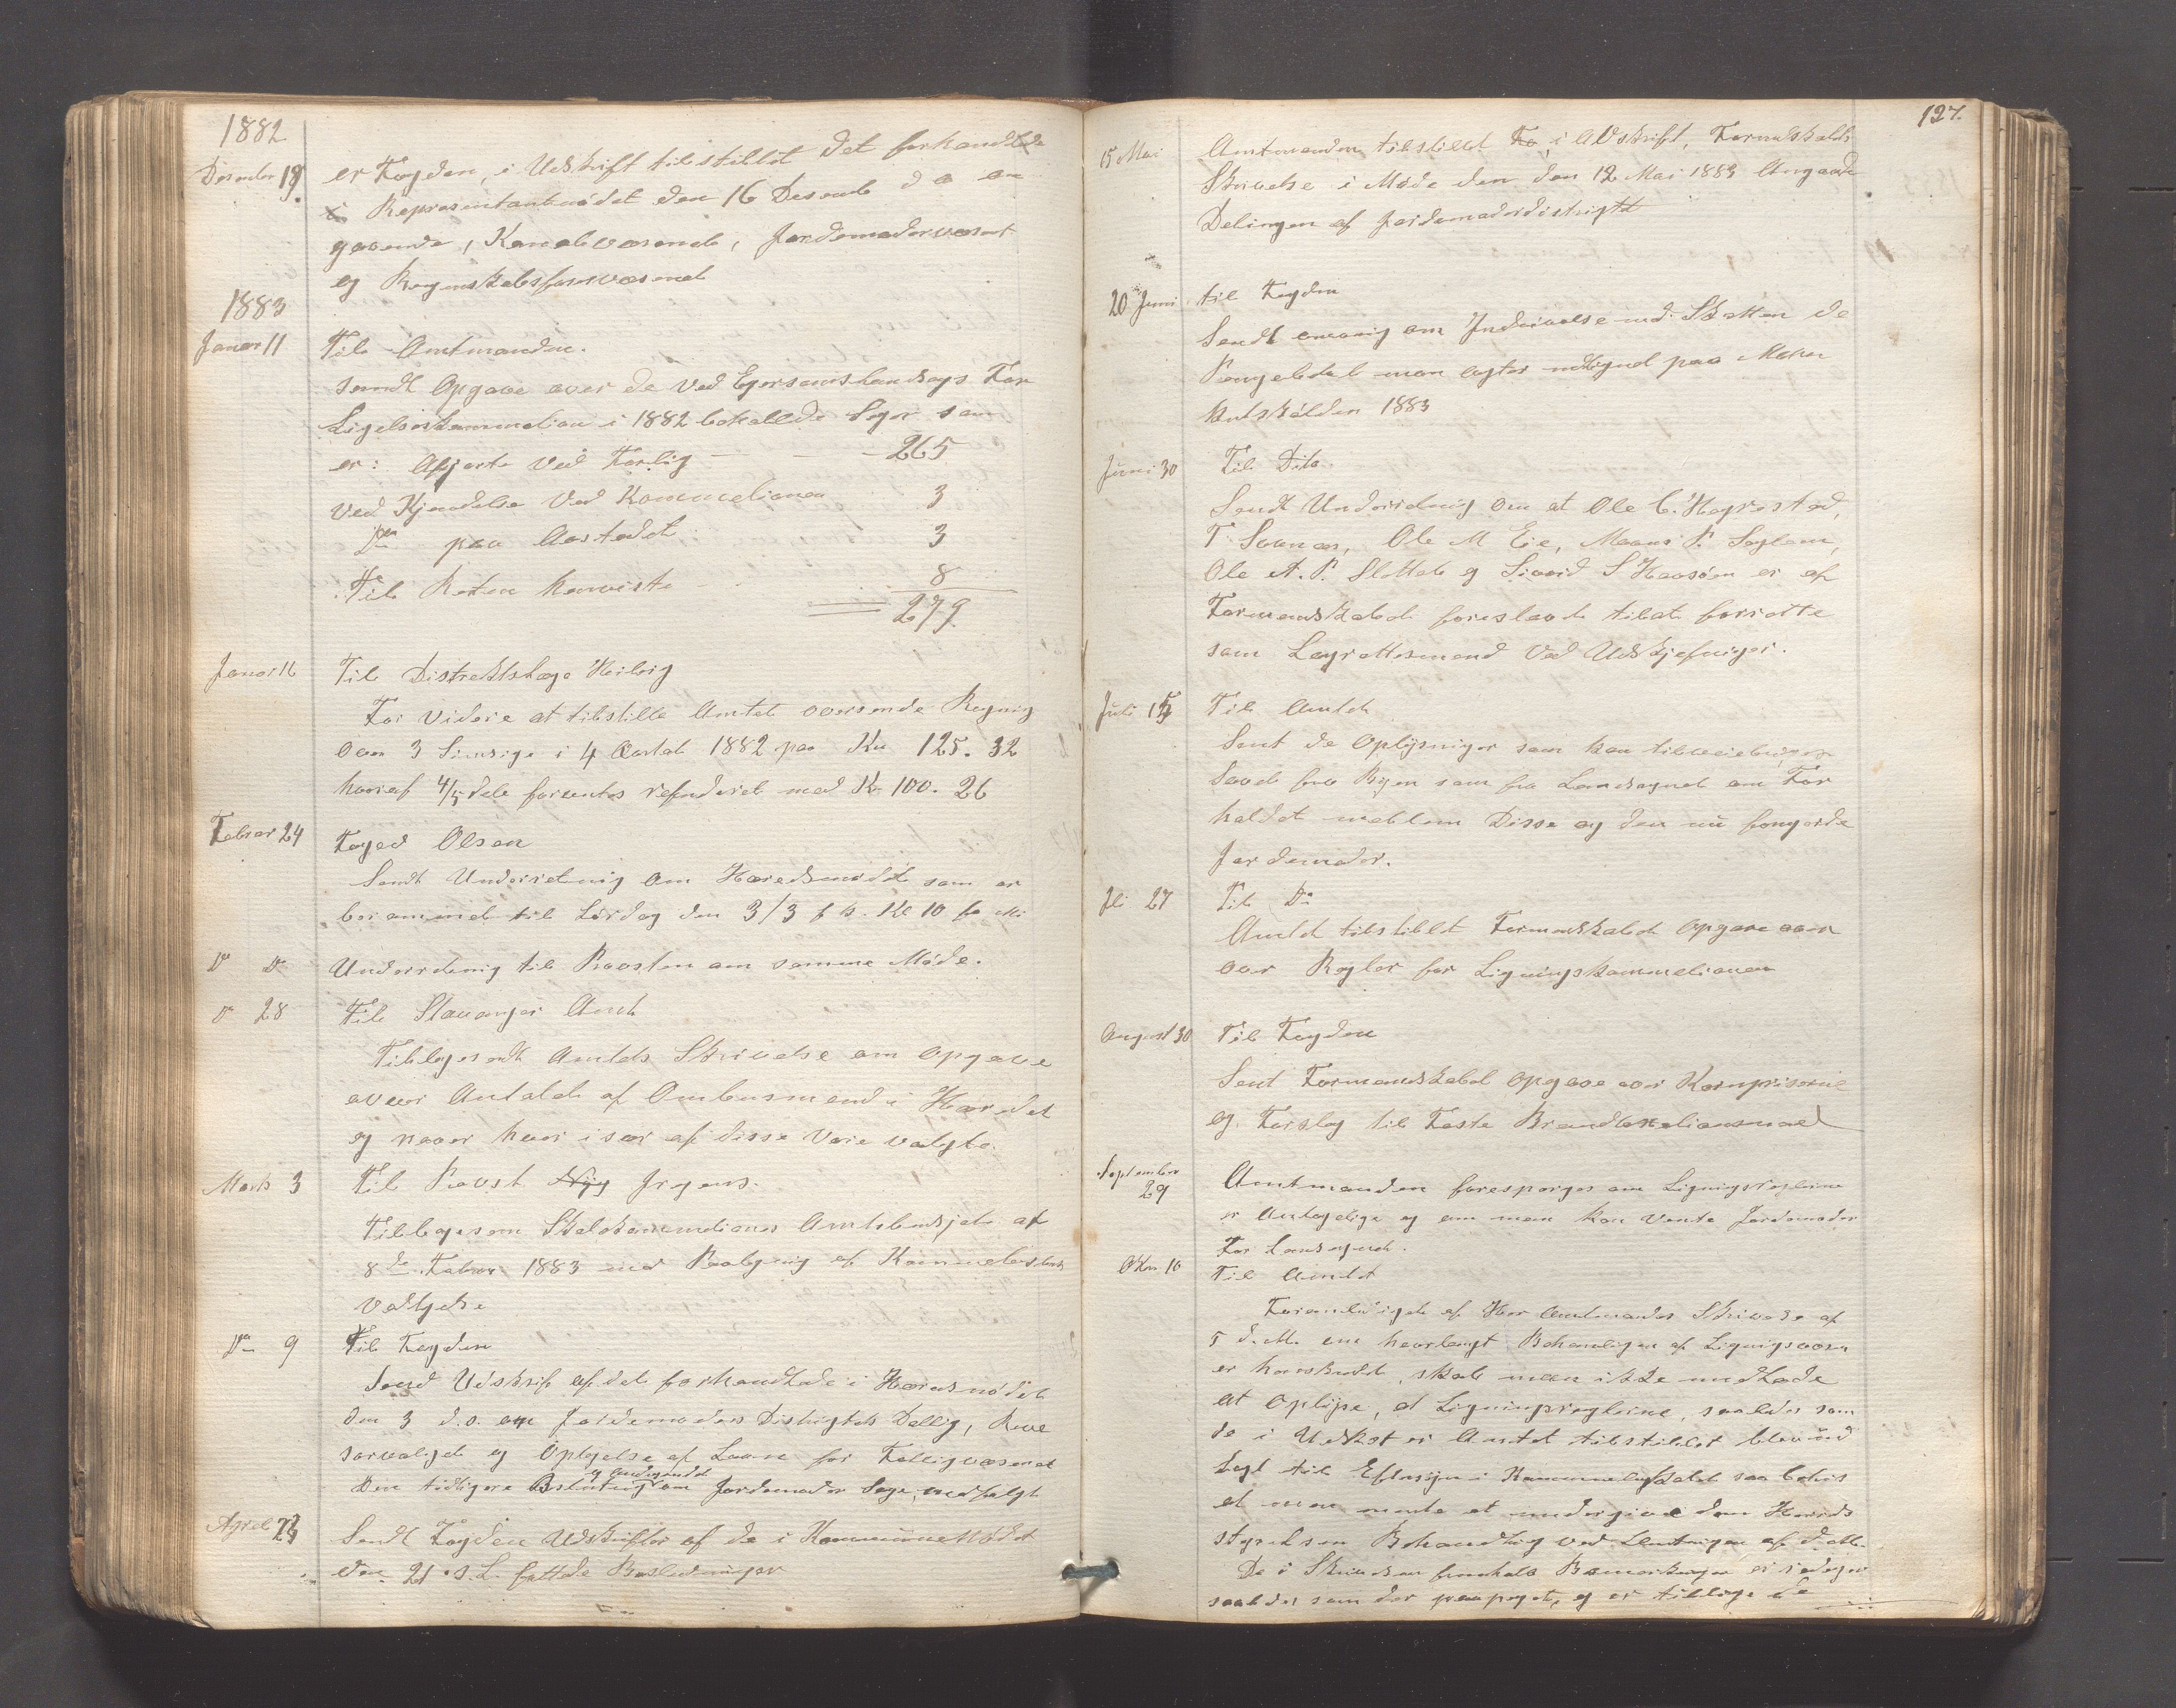 1882
Desember 19. er Fogden, i Udskrift tilstillet det forhandlede
i Repræsentantmødet den 16 Desemb d a an
gaaende, Kanalvæsenet, Jordemodervæsnet
og Regnskabsforvæsenet
1883
Januar 11 Til Amtmanden.
Sendt Opgave over de ved Egersunds Landsogns For
ligelseskommetion i 1882 behandlede Sager som
er: Afgjorte ved Forlig — — — 265
ved Kjendelse ved Kommetionen 3
Do paa Aastedet 3
Til Retten henviste 8
279
Januar 16 Til Distrektslæge Heiberg
For videre at tilstille Amtet oversende Regning
over 3 Sindsige i 4 Qvartal 1882 paa Kr 125. 32
hvoraf 4/5 dele forventes refunderet med Kr 100. 26
Februar 24 Foged Olsen
Sendt Underretning om Heredsmødet som er
berammet til Lørdag den 3/3 f k. Kl 10 fo Mi
Do Do Underretning til Provsten om samme Møde.
Do 28 Til Stavanger Amt
Tilbagesendt Amtets Skrivelse om Opgave
over Antalet af Ombudsmend i Heredet
og naar hver især af disse vare valgte.
Marts 3 Til Provst Nyg Jrgens.
Tilbagesendt Skolekommetionens Amtsbudsjet af
8de Febuar 1883 med Paategning af Kommunebestyr
vedtagelse
Do 9 Til Fogden
Send Udskrift af det forhandlede i Heredsmødet
den 3 d.s. om Jordemoders Distrigtets Delling, Reve
sorvalget og Optagelse af Laan for Fattigvæsenet
og andragendet
Den tidligere Beslutning om Jordemoder Sagen medfulgt
April 23 Sendt Fogden Udskrifter af de i KommuneMødet
den 21 d.s. fattede Beslutninger
127.
15 Mai Amtmanden tilstillet Fo i Udskrift, Formandskabets
Skrivelse i Møde den den 12 Mai 1883 Angaaende
Delingen af Jordemoderdistrigtet
20 Juni til Fogden
Sendt om Inddrivelse med Skatten de
Pengebeløb man agter udlignet paa Matri
kulskylden 1883
Juni 30 Til Dito.
Sendt Underretning om at Ole C. Hægrestad,
T Svanæs, Ole M Eie, Maans P. Søyland,
Ole A. P. Slettebø og Sivert S Haasøen er af
Formandskabet foreslaaet til at forrette
som Lagrettesmend ved Udskiftninger.
Juli 15 Til Amtet
Sent de Oplysninger som kan tilveiebringes
Saavel fra Byen som fra Landsognet om For
holdet mellem Disse og den nu fungerende
Jordemoder.
Jli 27 Til Do
Amtet tilstillet Formandskabets Opgave over
over Regler for Ligningskommetionen
August 30 Til Fogden
Sent Formandskabet Opgave over Kornpriserne
og Forslag til Faste Brandtaxtionsmænd
September
29 Amtmanden forespørges om Ligningsreglerne
er Antagelige og om man kan vente Jordemoder
for Landsognet.
Oktm 10 Til Amtet
Foranlediget af Herr Amtmandens Skrivelse af
5 d.M. om hvorlangt Behandligen af Ligningsvæsn
er skal man ikke undlade
at Oplyse, at Ligningsreglerne, saaledes som
de i Udkast er Amtet tilstillet blev ud
lagt til Eftersyn i Kommunelokalet saaledes
at man mente at undergive dem Hereds
styrelsen Behandling ved Slutningen af d.M.
De i Skrivelsen Bemerkninger er
saaledes som der paapeget, og er tillige de